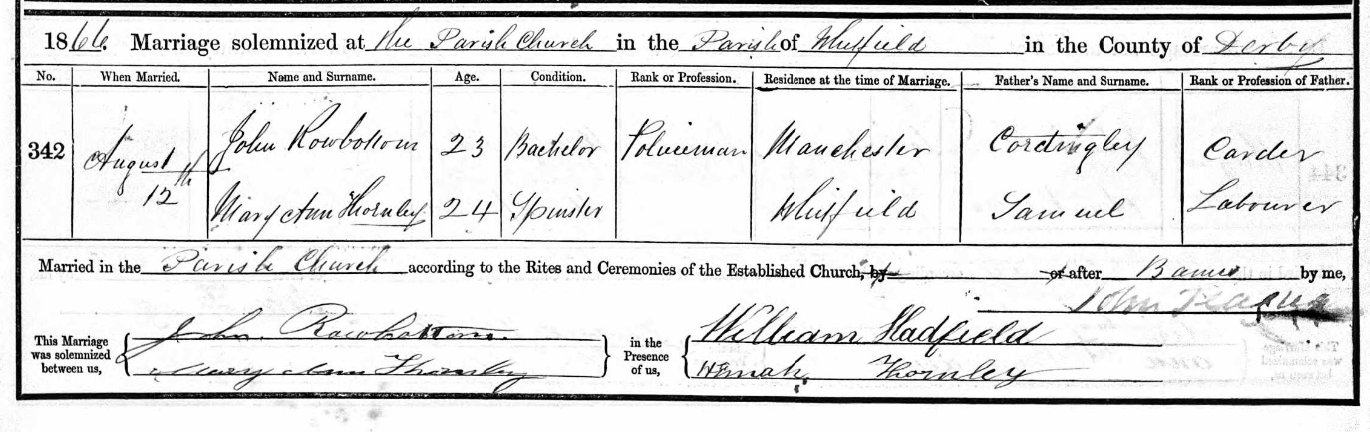 1866. Marriage solemnized at the Parish Church in the Parish of Whitfield in the County of Derby
No. When Married. Name and Surname. Age. Condition. Rank or Profession. Residence at the time of Marriage. Father's Name and Surname. Rank or Profession of Father.
342 August 12th John Rowbottom 23 Bachelor Policeman Manchester Cordingley Carder
Mary Ann Thornley 24 Spinster Whitfield Samuel Labourer
Married in the Parish Church according to the Rites and Ceremonies of the Established Church, by or after Banns by me,
John
This Marriage was solemnized between us, John Rowbottom. in the Presence of us, William Hadfield
Mary Ann Thornley Thornley